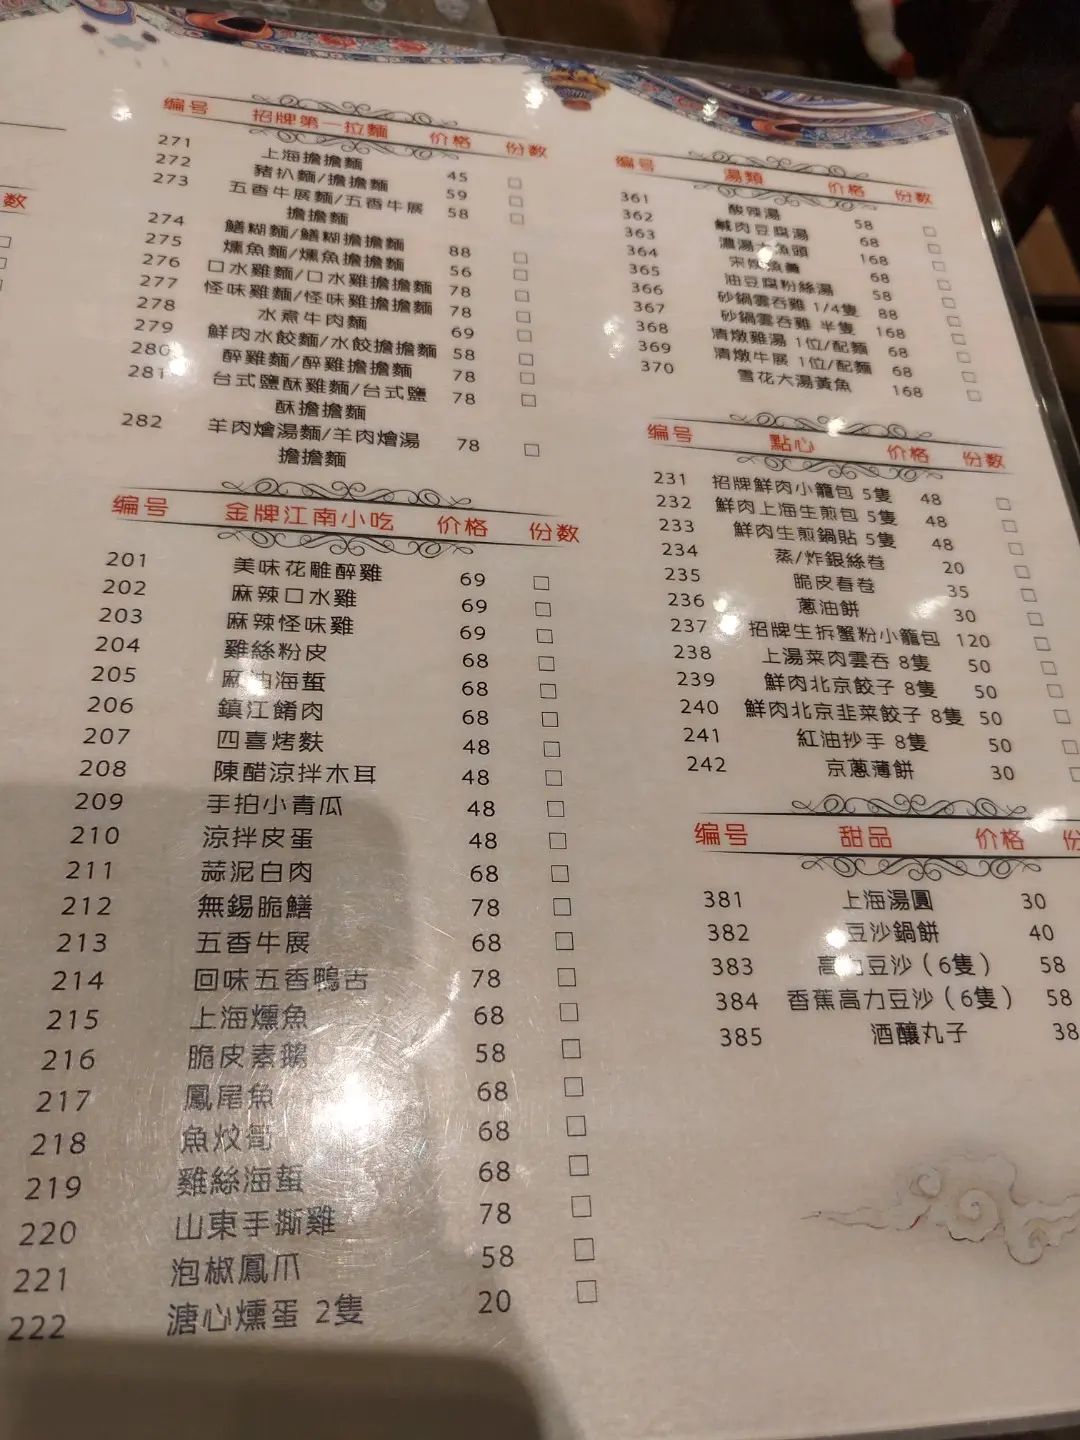 数
编号 招牌第一拉麵 价格 份数
271 上海擔擔麵 45
272 豬扒麵/擔擔麵 59
273 五香牛展麵/五香牛展 58
擔擔麵
274 鱔糊麵/鱔糊擔擔麵 88
275 燻魚麵/燻魚擔擔麵 56
276 口水雞麵/口水雞擔擔麵 78
277 怪味雞麵/怪味雞擔擔麵 78
278 水煮牛肉麵 69
279 鮮肉水餃麵/水餃擔擔麵 58
280 醉雞麵/醉雞擔擔麵 78
281 台式鹽酥雞麵/台式鹽 78
酥擔擔麵
282 羊肉燴湯麵/羊肉燴湯 78
擔擔麵
编号 金牌江南小吃 价格 份数
201 美味花雕醉雞 69
202 麻辣口水雞 69
203 麻辣怪味雞 69
204 雞絲粉皮 68
205 麻油海蜇 68
206 鎮江餚肉 68
207 四喜烤麩 48
208 陳醋涼拌木耳 48
209 手拍小青瓜 48
210 涼拌皮蛋 48
211 蒜泥白肉 68
212 無錫脆鱔 78
213 五香牛展 68
214 回味五香鴨舌 78
215 上海燻魚 68
216 脆皮素鵝 58
217 鳳尾魚 68
218 魚炆筍 68
219 雞絲海蜇 68
220 山東手撕雞 78
221 泡椒鳳爪 58
222 溏心燻蛋 2隻 20
编号 湯類 价格 份数
361 酸辣湯 58
362 鹹肉豆腐湯 68
363 濃湯大魚頭 168
364 宋嫂魚羹 68
365 油豆腐粉絲湯 58
366 砂鍋雲吞雞 1/4隻 88
367 砂鍋雲吞雞 半隻 168
368 清燉雞湯 1位/配麵 68
369 清燉牛展 1位/配麵 68
370 雪花大湯黃魚 168
编号 點心 价格 份数
231 招牌鮮肉小籠包 5隻 48
232 鮮肉上海生煎包 5隻 48
233 鮮肉生煎鍋貼 5隻 48
234 蒸/炸銀絲卷 20
235 脆皮春卷 35
236 蔥油餅 30
237 招牌生拆蟹粉小籠包 120
238 上湯菜肉雲吞 8隻 50
239 鮮肉北京餃子 8隻 50
240 鮮肉北京韭菜餃子 8隻 50
241 紅油抄手 8隻 50
242 京蔥薄餅 30
编号 甜品 价格 份
381 上海湯圓 30
382 豆沙鍋餅 40
383 高力豆沙（6隻） 58
384 香蕉高力豆沙（6隻） 58
385 酒釀丸子 38